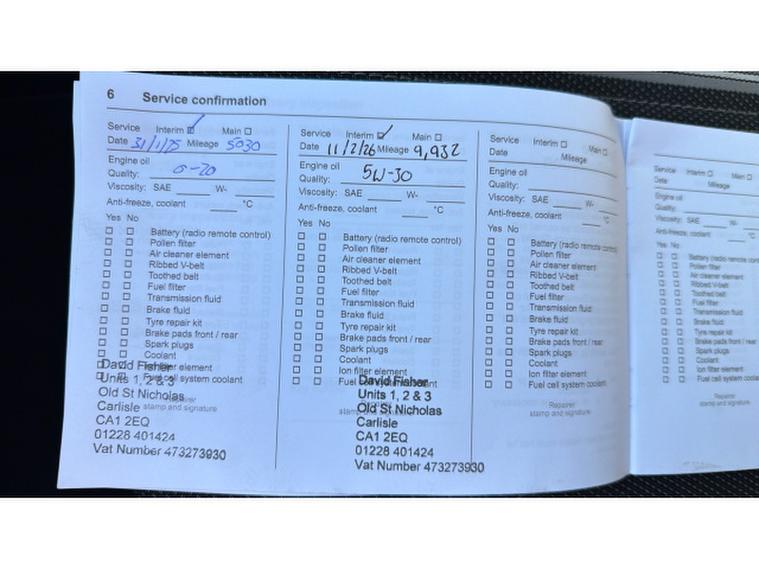 6 Service confirmation
Service Interim ☑ Main ☐
Date 31/1/25 Mileage 5030
Engine oil
Quality: 0-20
Viscosity: SAE W-
Anti-freeze, coolant °C
Yes No
☐ ☐ Battery (radio remote control)
☐ ☐ Pollen filter
☐ ☐ Air cleaner element
☐ ☐ Ribbed V-belt
☐ ☐ Toothed belt
☐ ☐ Fuel filter
☐ ☐ Transmission fluid
☐ ☐ Brake fluid
☐ ☐ Tyre repair kit
☐ ☐ Brake pads front / rear
☐ ☐ Spark plugs
☐ ☐ Coolant
☐ ☐ Ion filter element
☐ ☐ Fuel cell system coolant
Repairer
stamp and signature
David Fisher
Units 1, 2 & 3
Old St Nicholas
Carlisle
CA1 2EQ
01228 401424
Vat Number 473273930
Service Interim ☑ Main ☐
Date 11/2/26 Mileage 9,932
Engine oil
Quality: 5W-30
Viscosity: SAE W-
Anti-freeze, coolant °C
Yes No
☐ ☐ Battery (radio remote control)
☐ ☐ Pollen filter
☐ ☐ Air cleaner element
☐ ☐ Ribbed V-belt
☐ ☐ Toothed belt
☐ ☐ Fuel filter
☐ ☐ Transmission fluid
☐ ☐ Brake fluid
☐ ☐ Tyre repair kit
☐ ☐ Brake pads front / rear
☐ ☐ Spark plugs
☐ ☐ Coolant
☐ ☐ Ion filter element
☐ ☐ Fuel cell system coolant
David Fisher
Units 1, 2 & 3
Old St Nicholas
Carlisle
CA1 2EQ
01228 401424
Vat Number 473273930
Service Interim ☐ Main ☐
Date Mileage
Engine oil
Quality:
Viscosity: SAE W-
Anti-freeze, coolant °C
Yes No
☐ ☐ Battery (radio remote control)
☐ ☐ Pollen filter
☐ ☐ Air cleaner element
☐ ☐ Ribbed V-belt
☐ ☐ Toothed belt
☐ ☐ Fuel filter
☐ ☐ Transmission fluid
☐ ☐ Brake fluid
☐ ☐ Tyre repair kit
☐ ☐ Brake pads front / rear
☐ ☐ Spark plugs
☐ ☐ Coolant
☐ ☐ Ion filter element
☐ ☐ Fuel cell system coolant
Repairer
stamp and signature
Service Interim ☐ Main ☐
Date Mileage
Engine oil
Quality:
Viscosity: SAE W-
Anti-freeze, coolant °C
Yes No
☐ ☐ Battery (radio remote
☐ ☐ Pollen filter
☐ ☐ Air cleaner element
☐ ☐ Ribbed V-belt
☐ ☐ Toothed belt
☐ ☐ Fuel filter
☐ ☐ Transmission fluid
☐ ☐ Brake fluid
☐ ☐ Tyre repair kit
☐ ☐ Brake pads front / rear
☐ ☐ Spark plugs
☐ ☐ Coolant
☐ ☐ Ion filter element
☐ ☐ Fuel cell system coolant
Repairer
stamp and signature